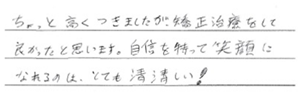 ちょっと高くつきましたが矯正治療をして
良かったと思います。自信を持って笑顔に
なれるのは、とても清清しい!